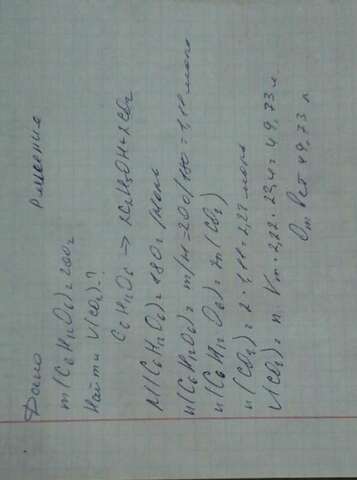 Дано Решение
m(C6H12O6)=200г
Найти V(CO2)-?
C6H12O6 → 2C2H5OH+2CO2
M(C6H12O6)=180г/моль
n(C6H12O6)= m/M=200/180=1,11 моль
n(C6H12O6)= 2n(CO2)
n(CO2)= 2·1,11=2,22 моль
V(CO2)= n·Vm=2,22·22,4=49,73 л
Ответ 49,73 л